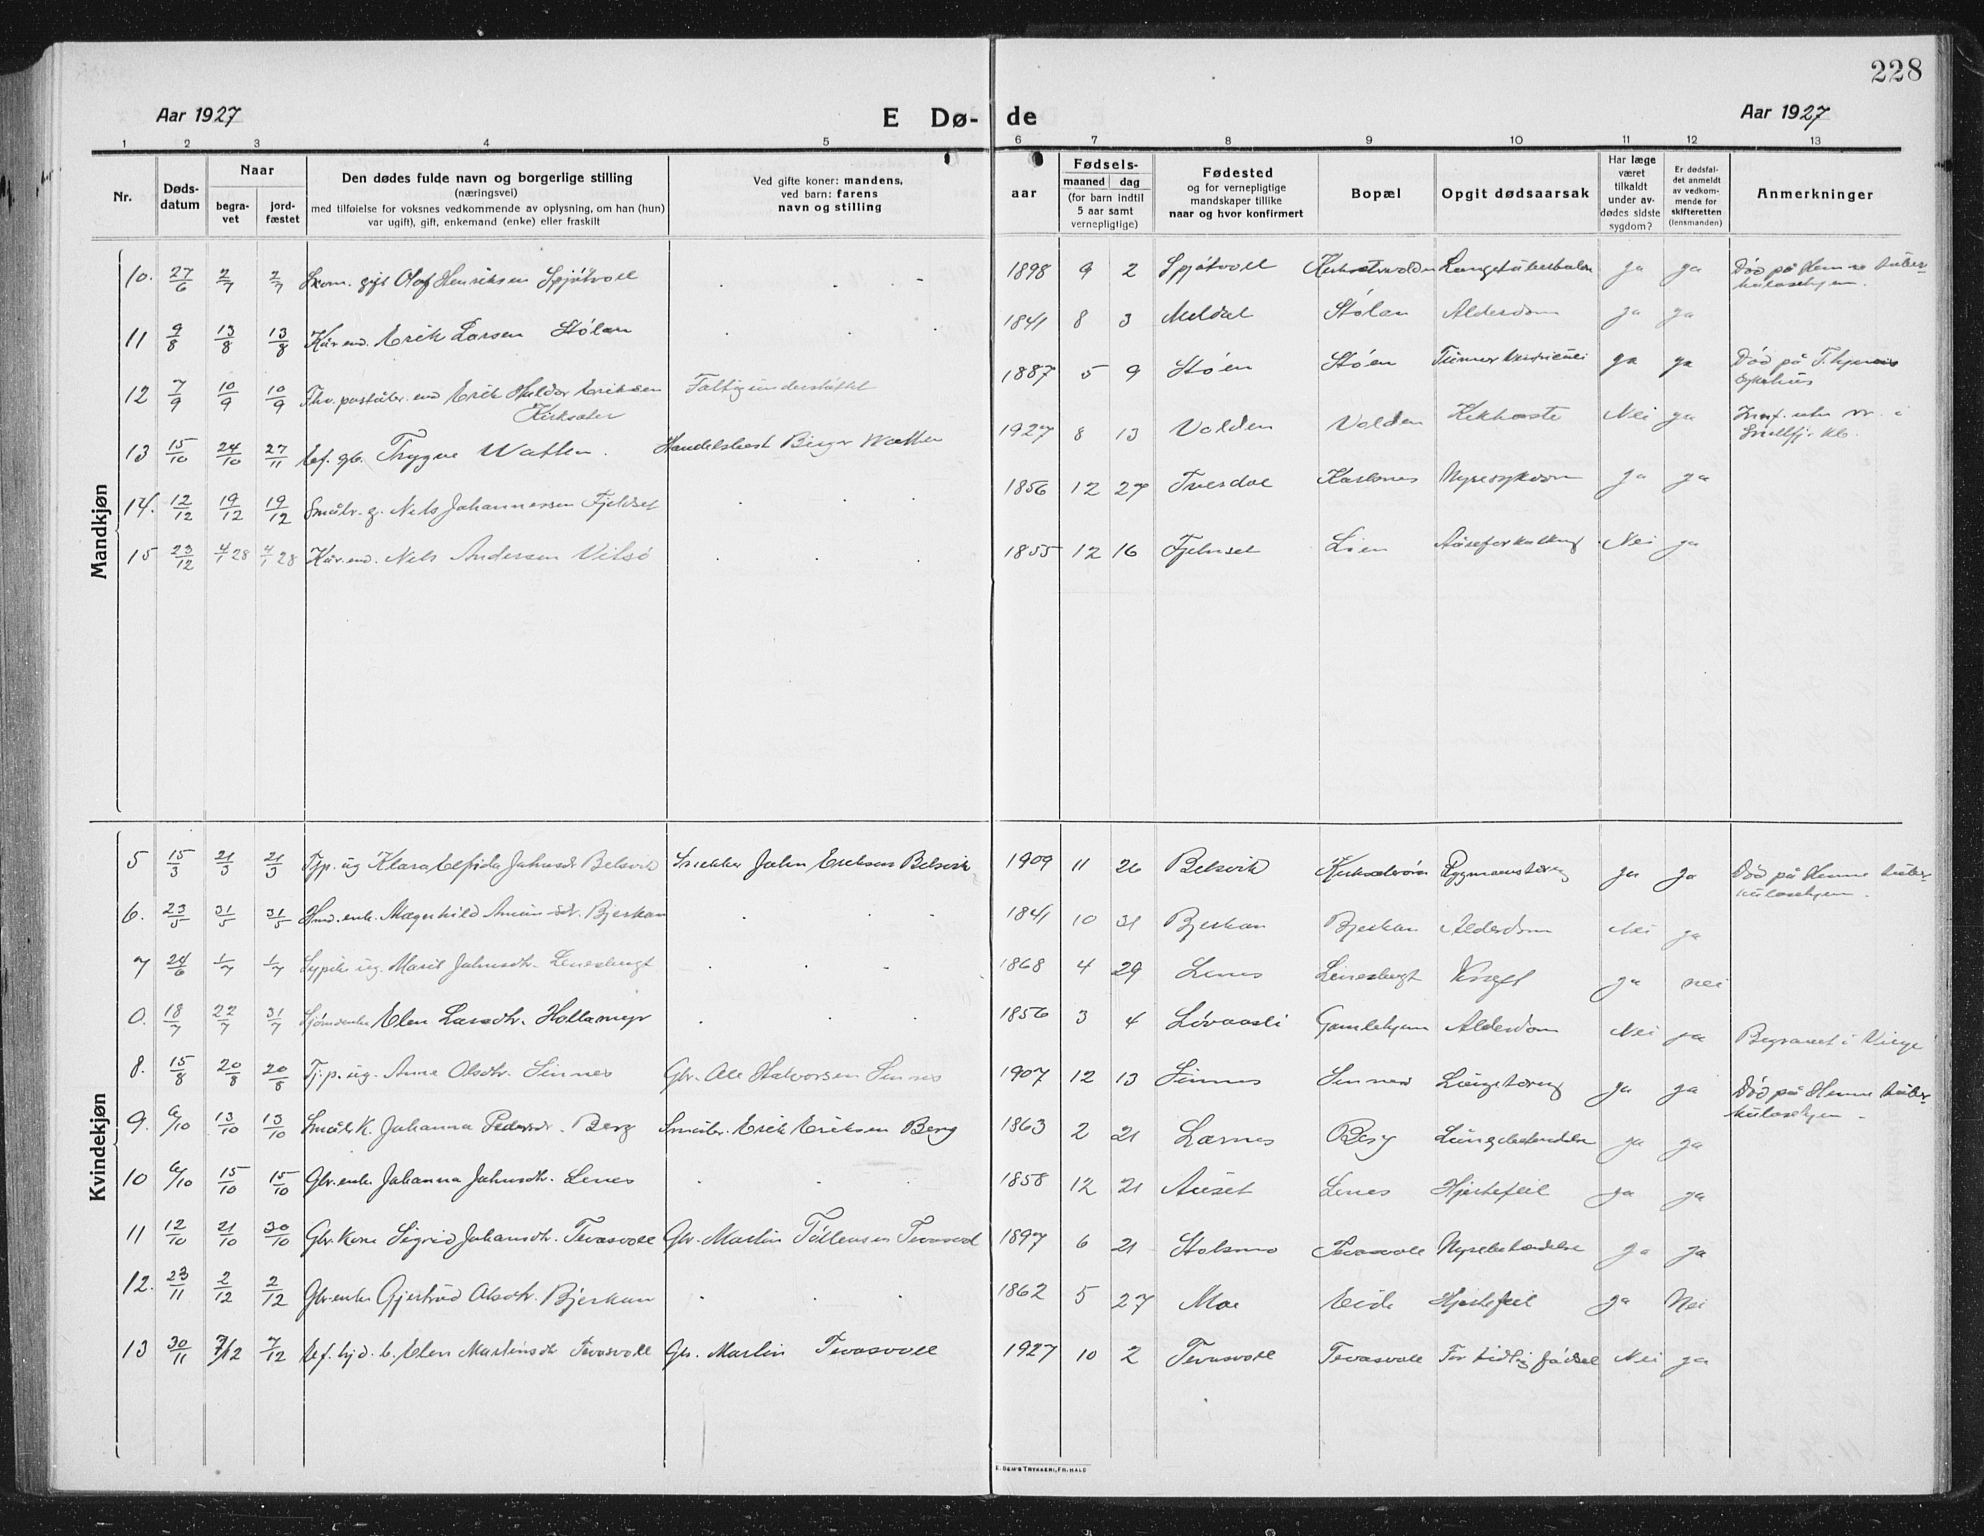 228
Aar 1927 E Dø- de Aar 1927
1 2 3 4 5 6 7 8 9 10 11 12 13
Nr.
Døds-
datum
Naar
begra-
vet
jord-
fæstet
Den dødes fulde navn og borgerlige stilling
(næringsvei)
med tilføielse for voksnes vedkommende av oplysning, om han (hun)
var ugift, gift, enkemand (enke) eller fraskilt
Ved gifte koner: mandens,
ved barn: farens
navn og stilling
aar
Fødsels-
maaned dag
(for barn indtil
5 aar samt
vernepligtige)
Fødested
og for vernepligtige
mandskaper tillike
naar og hvor konfirmert
Bopæl
Opgit dødsaarsak
Har læge
været
tilkaldt
under av-
dødes sidste
sygdom?
Er dødsfal-
det anmeldt
av vedkom-
mende for
skifteretten
(lensmanden)
Anmerkninger
Mandkjøn
10. 27/6 2/7 2/7 gift Olaf Henriksen Spjøtvoll 1898 9 2 Spjøtvoll ja ja Død på Hemne tuber-
kulosehjem.
11 9/8 13/8 13/8 Kår.enk. Erik Larsen Stølan 1841 8 3 Meldal Stølan Alderdom ja ja
12 7/9 10/9 10/9 Erik Haldor Eriksen Fattigunderstøttet 1887 5 9 Støen Støen ja ja Død på
Kirksæter sykehus
13 15/10 24/10 27/11 Trygve Watten. Birger Watten 1927 8 13 Volden Volden Kikhoste Nei ja
14. 12/12 19/12 19/12 Småbr. g. Nils Johannessen Fjeldset 1856 12 27 Nyresykdom ja ja
15 23/12 4/1 28 4/1 28 Kår.enk. Nils Andersen Vitsø 1855 12 16 Lien Åreforkalkning Nei ja
Kvindekjøn
5 15/3 21/3 21/3 Tjp. ug Klara Elfrida Johnsdr Belsvik Snekker John Eriksen Belsvik 1909 11 26 Belsvik Rygmarvstæring ja ja Død på Hemne tuber-
kulosehjem.
6. 23/5 31/5 31/5 Bjerkan 1841 10 31 Bjerkan Bjerkan Alderdom Nei ja
7 24/6 1/7 1/7 ug. Marit Johnsdtr. 1868 4 29 Lenes Kræft ja nei
0. 18/7 22/7 31/7 Elen Larsdtr. Hollamyr 1856 3 4 Løvaasli Gamlehjem Alderdom Nei ja Begravet i Vinje
8. 15/8 20/8 20/8 Tj.p. ug. Anne Olsdtr. Sinnes Gbr. Ole Halvorsen Sinnes 1907 12 13 Sinnes Sinnes Lungetæring ja ja Død på Hemne tuber-
kulosehjem.
9. 6/10 13/10 13/10 Småb.K. Johanna Pedersdr. Berg Småbr. Erik Eriksen Berg 1863 2 21 Lernes Berg Lungebetændelse ja ja
10 6/10 15/10 15/10 Gbr.enke Johanna Johnsdtr. Lenes 1858 12 21 Auset Lenes Hjertefeil ja ja
11 12/10 21/10 30/10 Gbr. Kone Sigrid Johansdtr. Tevasvoll Gbr. Martin Tøllefsen Tevasvol 1897 6 21 Stolsmo Tevasvoll Nyrebetændelse ja ja
12. 23/11 2/12 2/12 Gbr.enke Gjertrud Olsdtr. Bjerkan 1862 5 27 Moe Eide Hjertefeil ja Nei
13 30/11 7/12 7/12 Elen Martinsdtr Tevasvoll Gbr. Martin Tevasvoll 1927 10 2 Tevasvoll Tevasvoll For tidlig fødsel Nei ja
E. SEM'S TRYKKERI, FR.HALD